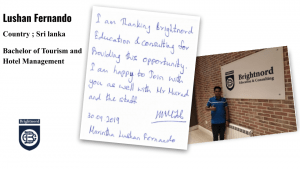 Lushan Fernando
Country ; Sri lanka
Bachelor of Tourism and
Hotel Management
Brightnord
I am Thanking Brightnord
Education & consulting for
Providing this opportunity.
I am happy to Join with
you as well with Mr Murad
and the staff
20.09.2019
Manntha Lushan Fernando
Brightnord
Education & Consulting